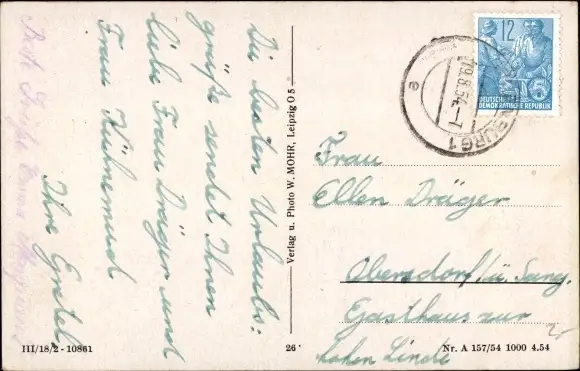 Die besten Urlaubs-
grüße sendet Ihnen
liebe Frau Dräger und
Frau Kühnemund
Ihre Gretel
Verlag u. Photo W. MOHR, Leipzig O 5
12
DEUTSCHE
DEMOKRATISCHE REPUBLIK
19.8.54.-7
BURG 1
e
Frau
Ellen Dräger
Obersdorf/ü. Sang.
Gasthaus zur
hohen Linde
III/18/2 - 10861
26
Nr. A 157/54 1000 4.54